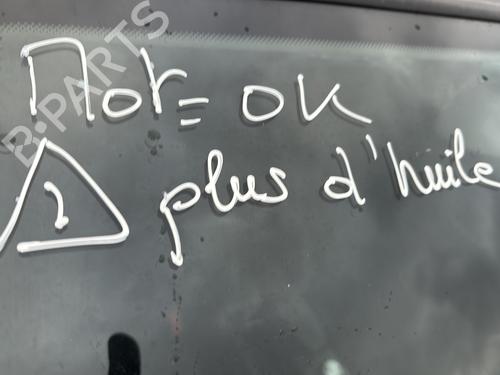 Mot = OK
⚠ plus d'huile
B-PARTS